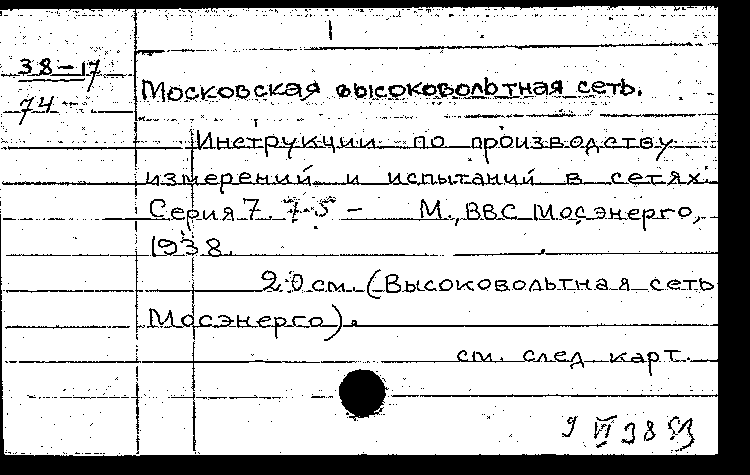 38-17
74
Московская высоковольтная сеть.
Инструкции по производству
измерений и испытаний в сетях.
Серия 7. 7-5 - М., ВВС Мосэнерго,
1938.
20 см. (Высоковольтная сеть
Мосэнерго).
см. след. карт.
9 VI 38